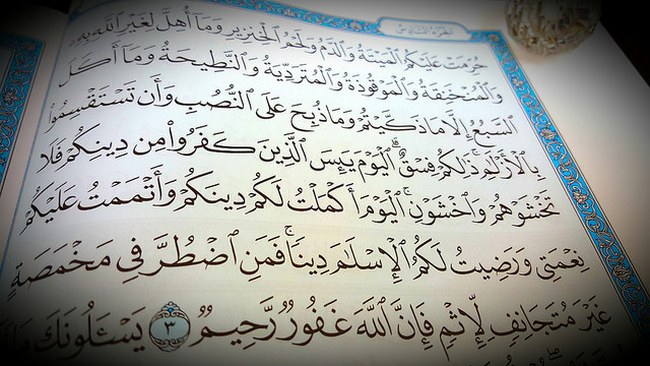 الجزء السادس
حُرِّمَتْ عَلَيْكُمُ ٱلْمَيْتَةُ وَٱلدَّمُ وَلَحْمُ ٱلْخِنزِيرِ وَمَآ أُهِلَّ لِغَيْرِ ٱللَّهِ بِهِۦ
وَٱلْمُنْخَنِقَةُ وَٱلْمَوْقُوذَةُ وَٱلْمُتَرَدِّيَةُ وَٱلنَّطِيحَةُ وَمَآ أَكَلَ
ٱلسَّبُعُ إِلَّا مَا ذَكَّيْتُمْ وَمَا ذُبِحَ عَلَى ٱلنُّصُبِ وَأَن تَسْتَقْسِمُوا۟
بِٱلْأَزْلَٰمِ ذَٰلِكُمْ فِسْقٌ ۗ ٱلْيَوْمَ يَئِسَ ٱلَّذِينَ كَفَرُوا۟ مِن دِينِكُمْ فَلَا
تَخْشَوْهُمْ وَٱخْشَوْنِ ۚ ٱلْيَوْمَ أَكْمَلْتُ لَكُمْ دِينَكُمْ وَأَتْمَمْتُ عَلَيْكُمْ
نِعْمَتِى وَرَضِيتُ لَكُمُ ٱلْإِسْلَٰمَ دِينًا ۚ فَمَنِ ٱضْطُرَّ فِى مَخْمَصَةٍ
غَيْرَ مُتَجَانِفٍ لِّإِثْمٍ ۙ فَإِنَّ ٱللَّهَ غَفُورٌ رَّحِيمٌ ٣ يَسْـَٔلُونَكَ مَاذَآ